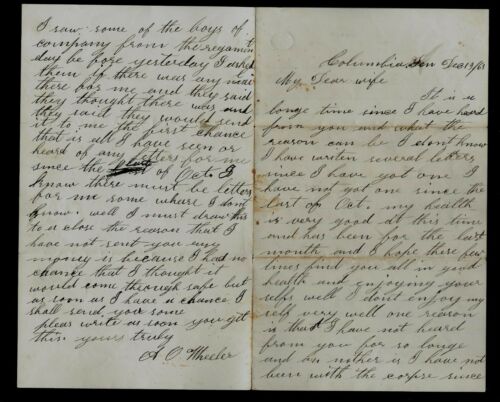 Columbia Ten Dec 13/63
My Dear wife
It is a
longe time since I have heard
from you and what the
reason can be I dont know
I have writen several letters
since I have got one I
have not got one since the
last of Oct. my health
is very good at this time
and has been for the last
month and I hope these few
lines find you all in good
health and enjoying your
selfs well I dont enjoy my
self very well one reason
is that I have not heard
from you for so longe
and an nother is I have not
been with the corpse since
I saw some of the boys of
company from the regament
day be fore yesterday I asked
them if there was any mail
there for me and they said
they thought there was and
they said they would send
it to me the first chance
that is all I have seen or
heard of any letters for me
since the of Oct. I
know there must be letters
for me some whare I dont
know. well I must draw this
to a close the reason that I
have not sent you any
money is because I had no
chance that I thought it
would come through safe but
as soon as I have a chance I
shall send you some
pleas write as soon you get
this yours truly
A. O. Wheeler